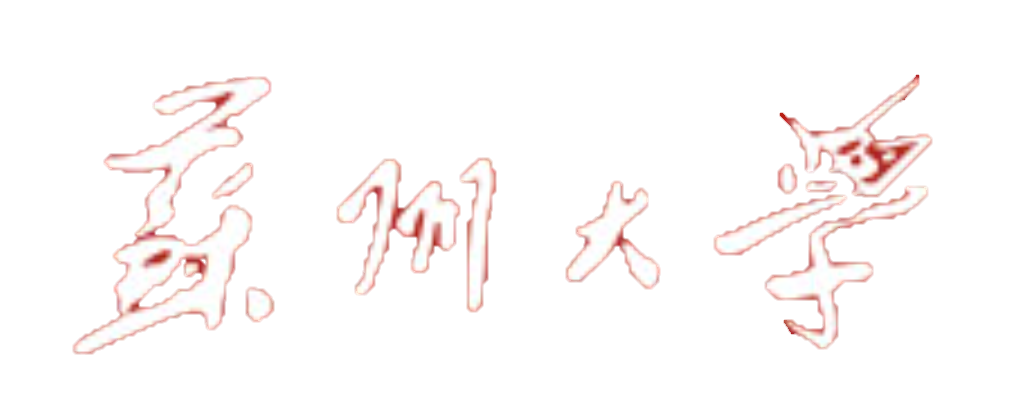 蘇州大學